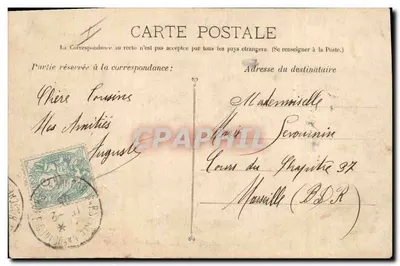 CARTE POSTALE
La Correspondance au recto n'est pas acceptée par tous les pays étrangers. (Se renseigner à la Poste.)
Partie réservée à la correspondance:
Adresse du destinataire
Chère Cousine
Mes Amitiés
Auguste
Mademoiselle
Cours du Chapitre 37
Marseille (B.D.R)
CPAPHIL